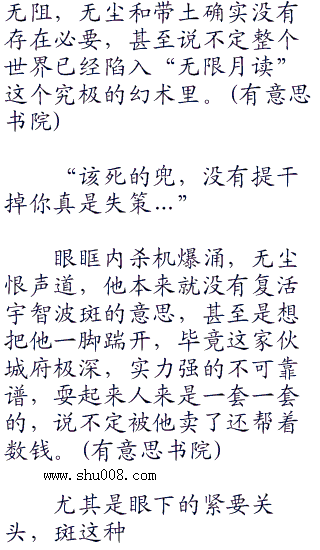 无阻，无尘和带土确实没有
存在必要，甚至说不定整个
世界已经陷入“无限月读”
这个究极的幻术里。(有意思
书院)
“该死的兜，没有提干
掉你真是失策…”
眼眶内杀机爆涌，无尘
恨声道，他本来就没有复活
宇智波斑的意思，甚至是想
把他一脚踹开，毕竟这家伙
城府极深，实力强的不可靠
谱，耍起来人来是一套一套
的，说不定被他卖了还帮着
数钱。(有意思书院)
www.shu008.com
尤其是眼下的紧要关
头，斑这种